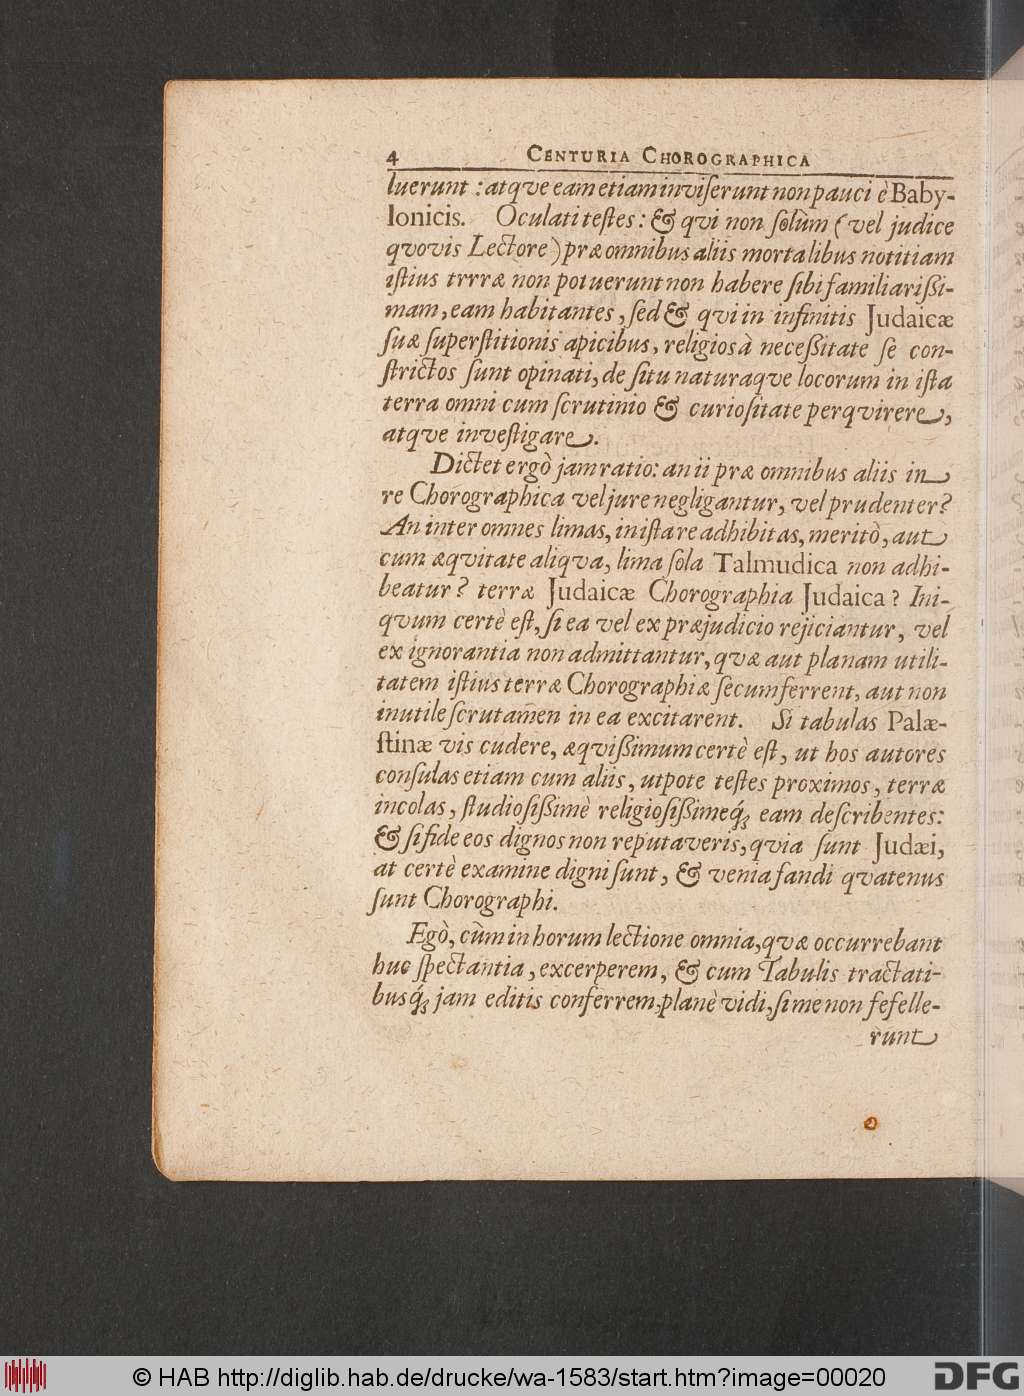 4 CENTURIA CHOROGRAPHICA
luerunt : atqve eam etiam inviſerunt non pauci è Baby-
lonicis. Oculati teſtes : & qvi non ſolùm ( vel judice
qvovis Lectore ) præ omnibus aliis mortalibus notitiam
iſtius trrræ non potuerunt non habere ſibi familiariſſi-
mam, eam habitantes, ſed & qvi in infinitis Judaicæ
ſuæ ſuperſtitionis apicibus, religiosà neceßitate ſe con-
ſtrictos ſunt opinati, de ſitu naturaqve locorum in iſta
terra omni cum ſcrutinio & curioſitate perqvirere,
atqve inveſtigare.
Dictet ergò jam ratio: an ii præ omnibus aliis in
re Chorographica vel jure negligantur, vel prudenter?
An inter omnes limas, in iſta re adhibitas, meritò, aut
cum æqvitate aliqva, lima ſola Talmudica non adhi-
beatur? terræ Judaicæ Chorographia Judaica? Ini-
qvum certè eſt, ſi ea vel ex præjudicio rejiciantur, vel
ex ignorantia non admittantur, qvæ aut planam utili-
tatem iſtius terræ Chorographiæ ſecum ferrent, aut non
inutile ſcrutamen in ea excitarent. Si tabulas Palæ-
ſtinæ vis cudere, æqvißimum certè eſt, ut hos autores
conſulas etiam cum aliis, utpote teſtes proximos, terræ
incolas, ſtudioſißimè religioſißimeq́; eam deſcribentes:
& ſi fide eos dignos non reputaveris, qvia ſunt Judæi,
at certè examine digni ſunt, & venia fandi qvatenus
ſunt Chorographi.
Egò, cùm in horum lectione omnia, qvæ occurrebant
huc ſpectantia, excerperem, & cum Tabulis tractati-
busq́; jam editis conferrem, planè vidi, ſi me non fefelle-
runt
© HAB http://diglib.hab.de/drucke/wa-1583/start.htm?image=00020
DFG